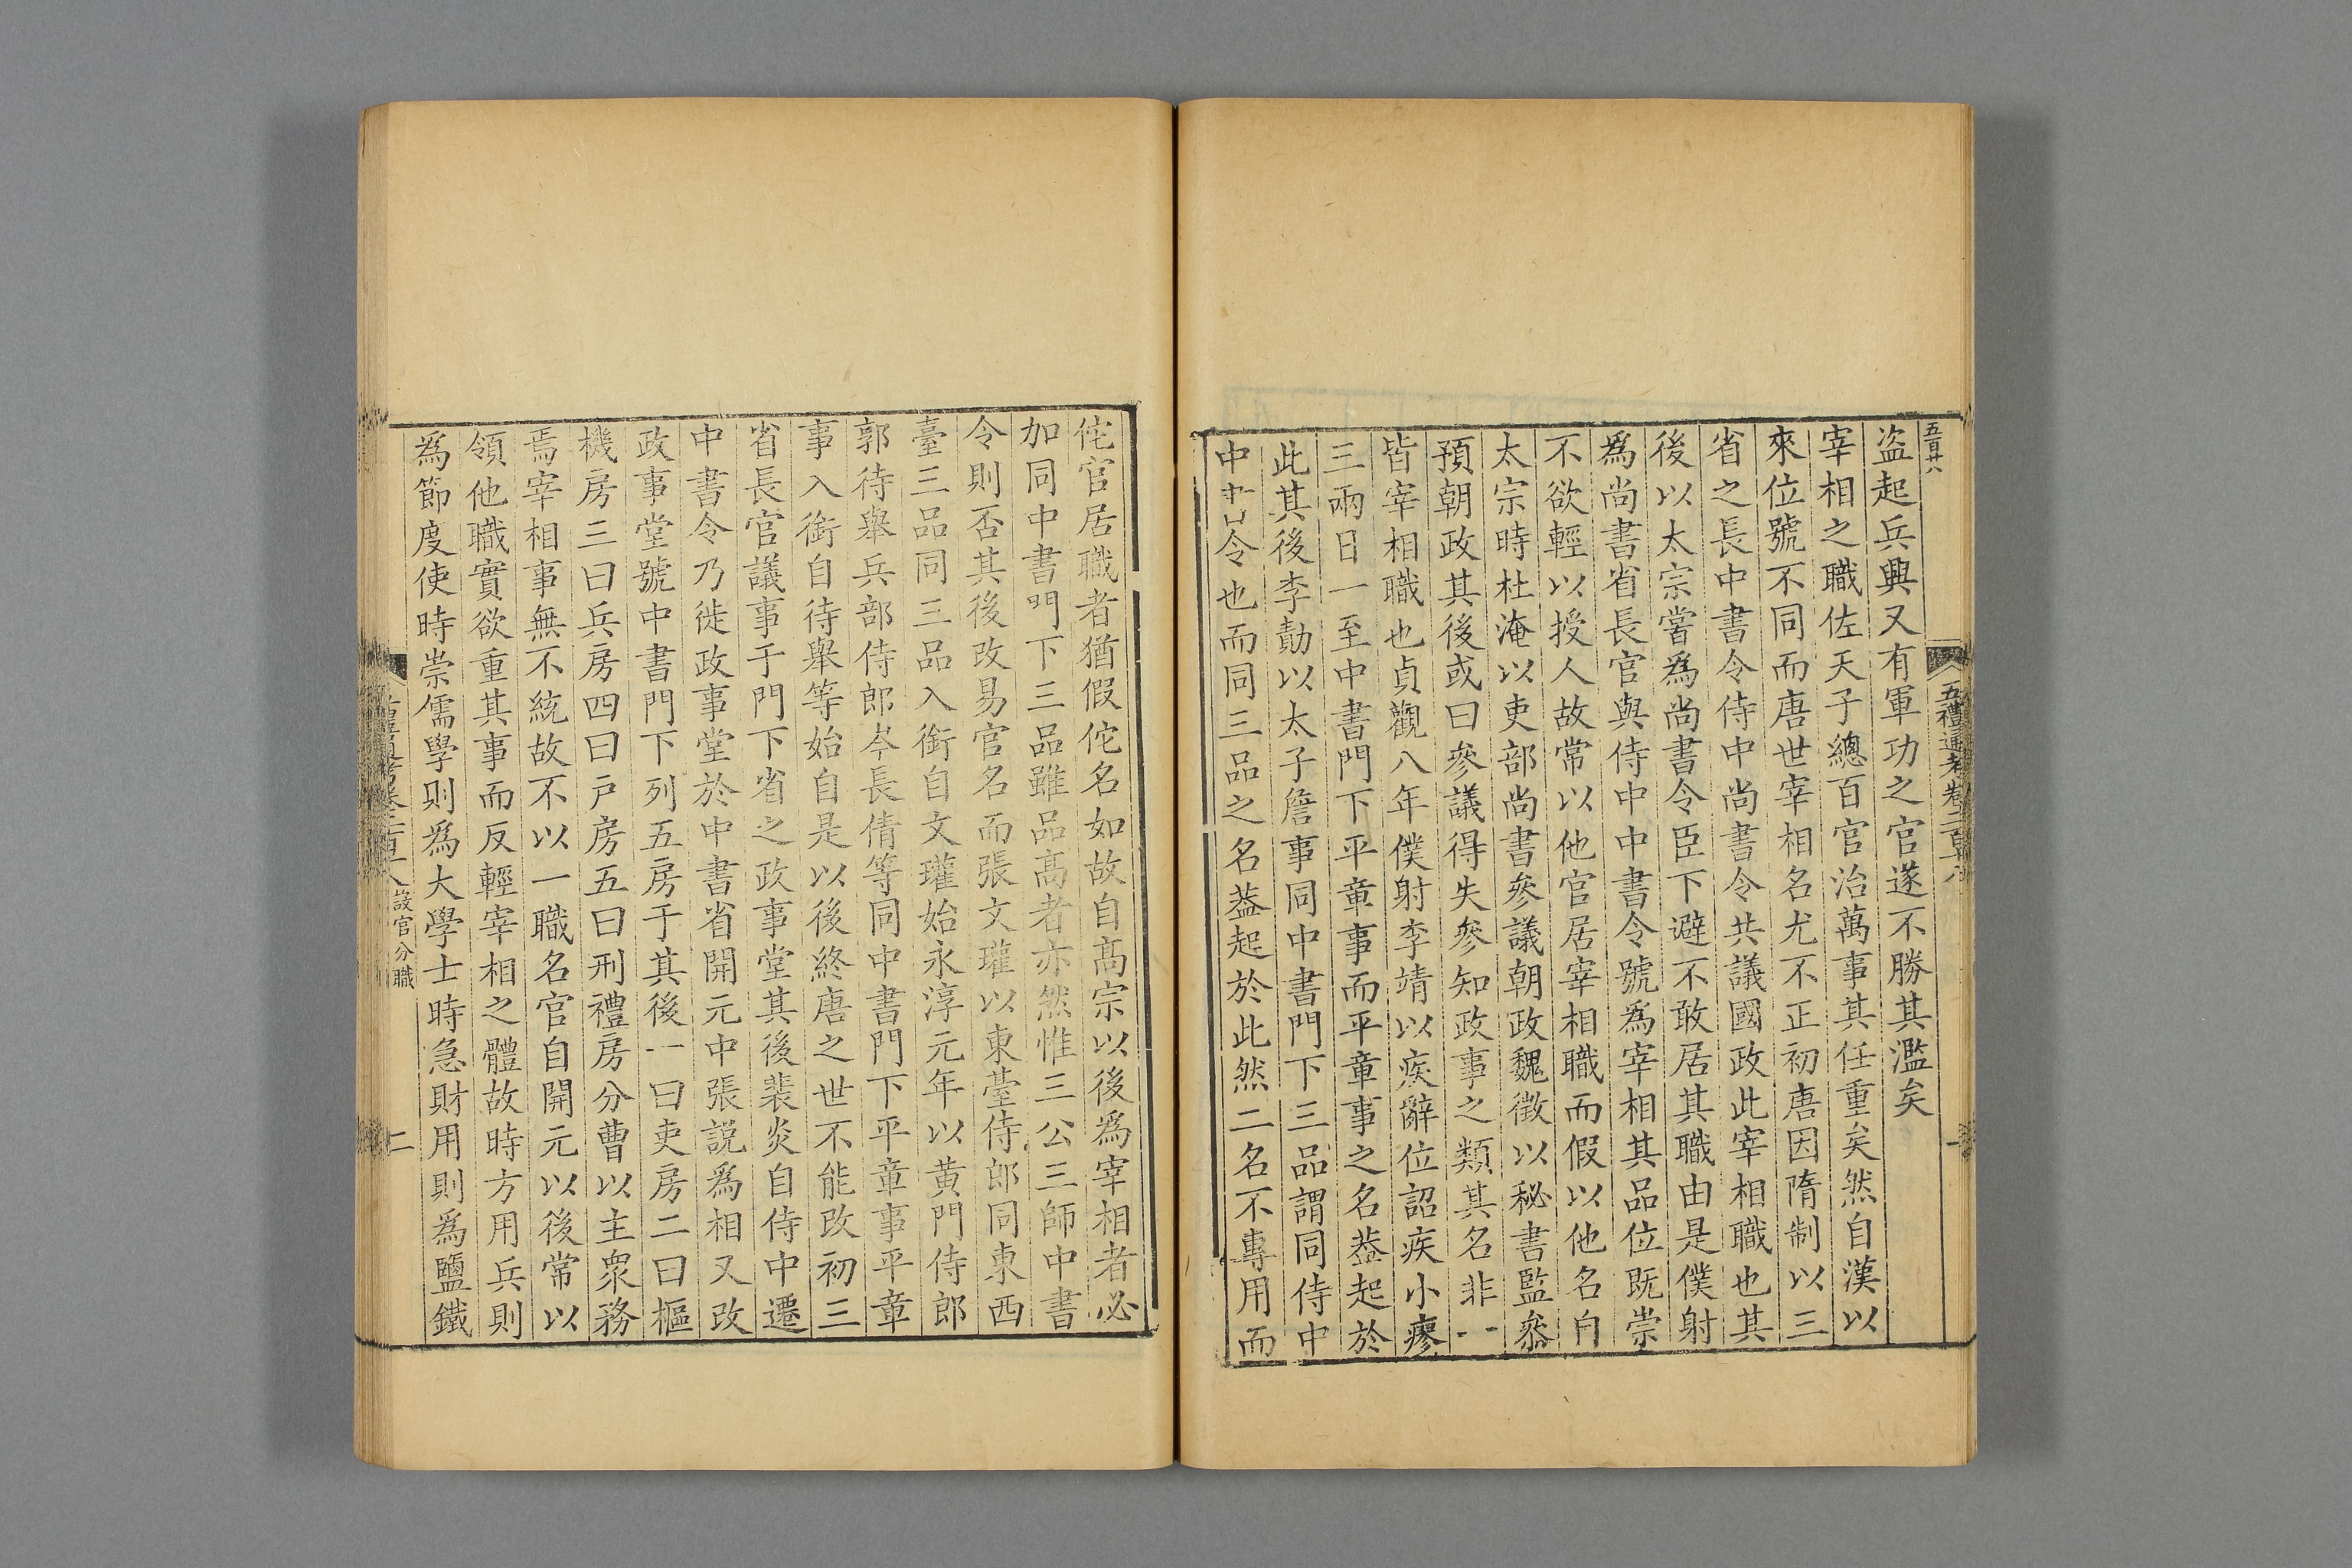 五百廿八
五禮通考卷二百十八
一
盗起兵興又有軍功之官遂不勝其濫矣
宰相之職佐天子總百官治萬事其任重矣然自漢以
來位號不同而唐世宰相名尤不正初唐因隋制以三
省之長中書令侍中尚書令共議國政此宰相職也其
後以太宗嘗爲尚書令臣下避不敢居其職由是僕射
爲尚書省長官與侍中中書令號爲宰相其品位既崇
不欲輕以授人故常以他官居宰相職而假以他名自
太宗時杜淹以吏部尚書參議朝政魏徴以秘書監參
預朝政其後或曰參議得失參知政事之類其名非一
皆宰相職也貞觀八年僕射李靖以疾辭位詔疾小瘳
三兩日一至中書門下平章事而平章事之名葢起於
此其後李勣以太子詹事同中書門下三品謂同侍中
中書令也而同三品之名葢起於此然二名不專用而
佗官居職者猶假佗名如故自髙宗以後爲宰相者必
加同中書門下三品雖品髙者亦然惟三公三師中書
令則否其後改易官名而張文瓘以東臺侍郎同東西
臺三品同三品入銜自文瓘始永淳元年以黄門侍郎
郭待舉兵部侍郎岑長倩等同中書門下平章事平章
事入銜自待舉等始自是以後終唐之世不能改初三
省長官議事于門下省之政事堂其後裴炎自侍中遷
中書令乃徙政事堂於中書省開元中張説爲相又改
政事堂號中書門下列五房于其後一曰吏房二曰樞
機房三曰兵房四曰戸房五曰刑禮房分曹以主衆務
焉宰相事無不統故不以一職名官自開元以後常以
領他職實欲重其事而反輕宰相之體故時方用兵則
爲節度使時崇儒學則爲大學士時急財用則爲鹽鐵
五禮通考卷二百十八 設官分職
二